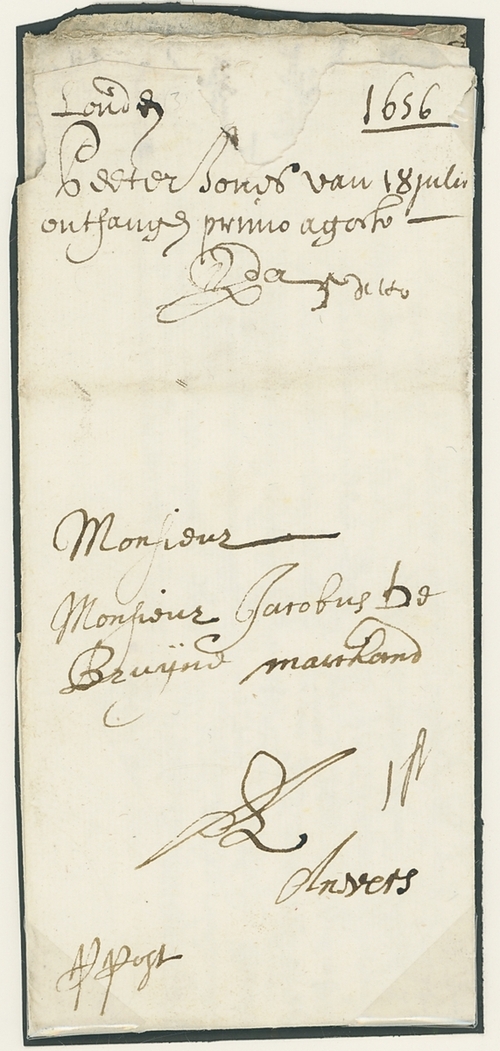 Londen 1656
Peeter Jones van 18 julio
ontfangen primo agosto
ditto
Monsieur
Monsieur Jacobus de
Bruÿne marchand
Anvers
Post